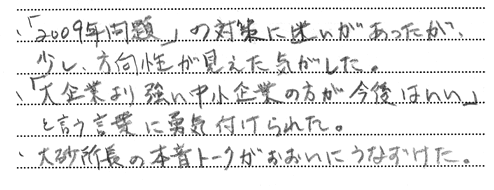 、「2009年問題」の対策に迷いがあったが、
少し、方向性が見えた気がした。
、「大企業より強い中小企業の方が今後はいい」
と言う言葉に勇気付けられた。
、大砂所長の本音トークがおおいにうなずけた。